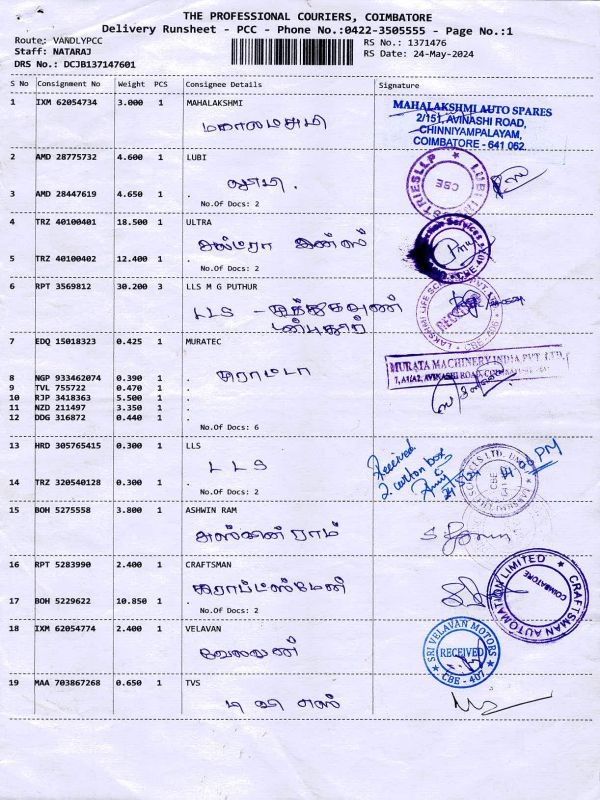 THE PROFESSIONAL COURIERS, COIMBATORE
Delivery Runsheet - PCC - Phone No.:0422-3505555 - Page No.:1
Route: VANDLYPCC
RS No.: 1371476
Staff: NATARAJ
RS Date: 24-May-2024
DRS No.: DCJB137147601
S No Consignment No Weight PCS Consignee Details Signature
1 IXM 62054734 3.000 1 MAHALAKSHMI
மகாலட்சுமி
MAHALAKSHMI AUTO SPARES
2/151, AVINASHI ROAD,
CHINNIYAMPALAYAM,
COIMBATORE - 641 062.
2 AMD 28775732 4.600 1 LUBI
லுபி.
CBE
3 AMD 28447619 4.650 1 .
No.Of Docs: 2
4 TRZ 40100401 18.500 1 ULTRA
அல்ட்ரா
5 TRZ 40100402 12.400 1 .
No.Of Docs: 2
6 RPT 3569812 30.200 3 LLS M G PUTHUR
LLS -
RECEIVED
7 EDQ 15018323 0.425 1 MURATEC
முராடா
MURATA MACHINERY INDIA PVT. LTD.
7, A1/A2, AVINASHI ROAD,
8 NGP 933462074 0.390 1 .
9 TVL 755722 0.470 1 .
10 RJP 3418363 5.500 1 .
11 NZD 211497 3.350 1 .
12 DDG 316872 0.440 1 .
No.Of Docs: 6
13 HRD 305765415 0.300 1 LLS
LLS
Received
2 carton box
PM
14 TRZ 320540128 0.300 1 .
No.Of Docs: 2
15 BOH 5275558 3.800 1 ASHWIN RAM
அஸ்வின் ராம்
16 RPT 5283990 2.400 1 CRAFTSMAN
கிராப்ட்ஸ்மேன்
CRAFTSMAN AUTOMATION LIMITED
COIMBATORE
17 BOH 5229622 10.850 1 .
No.Of Docs: 2
18 IXM 62054774 2.400 1 VELAVAN
வேலவன்
SRI VELAVAN MOTORS
RECEIVED
CBE - 407
19 MAA 703867268 0.650 1 TVS
டி வி எஸ்